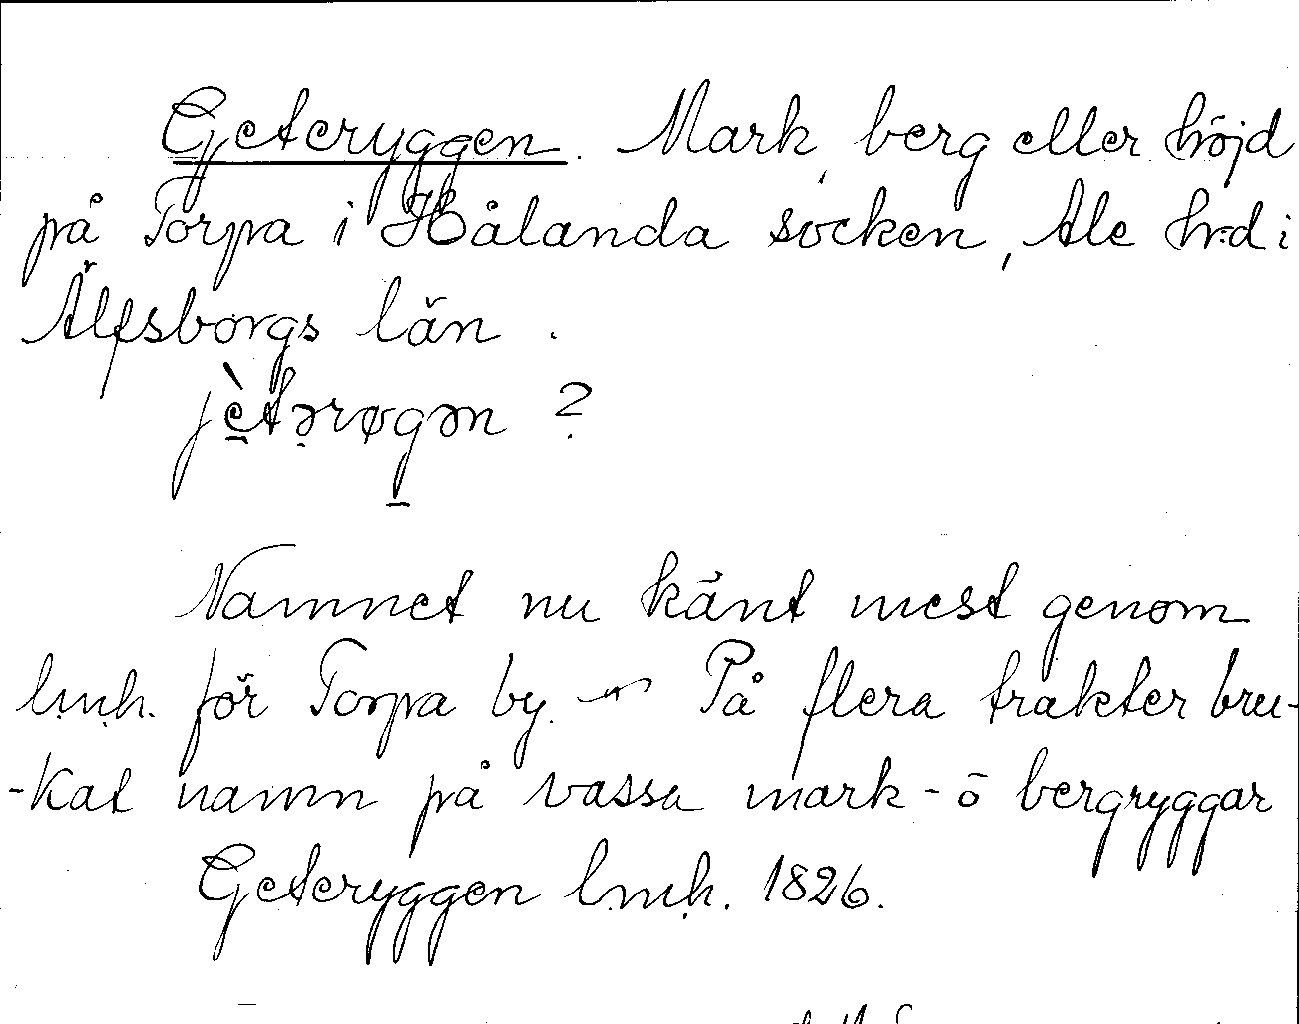 Geteryggen. Mark, berg eller höjd
på Torpa i Hålanda socken, Ale hrd i
Älfsborgs län.
jètərøgən ?
Namnet nu känt mest genom
lmh. för Torpa by. ~ På flera trakter bru-
-kat namn på vassa mark- o bergryggar
Geteryggen lmh. 1826.